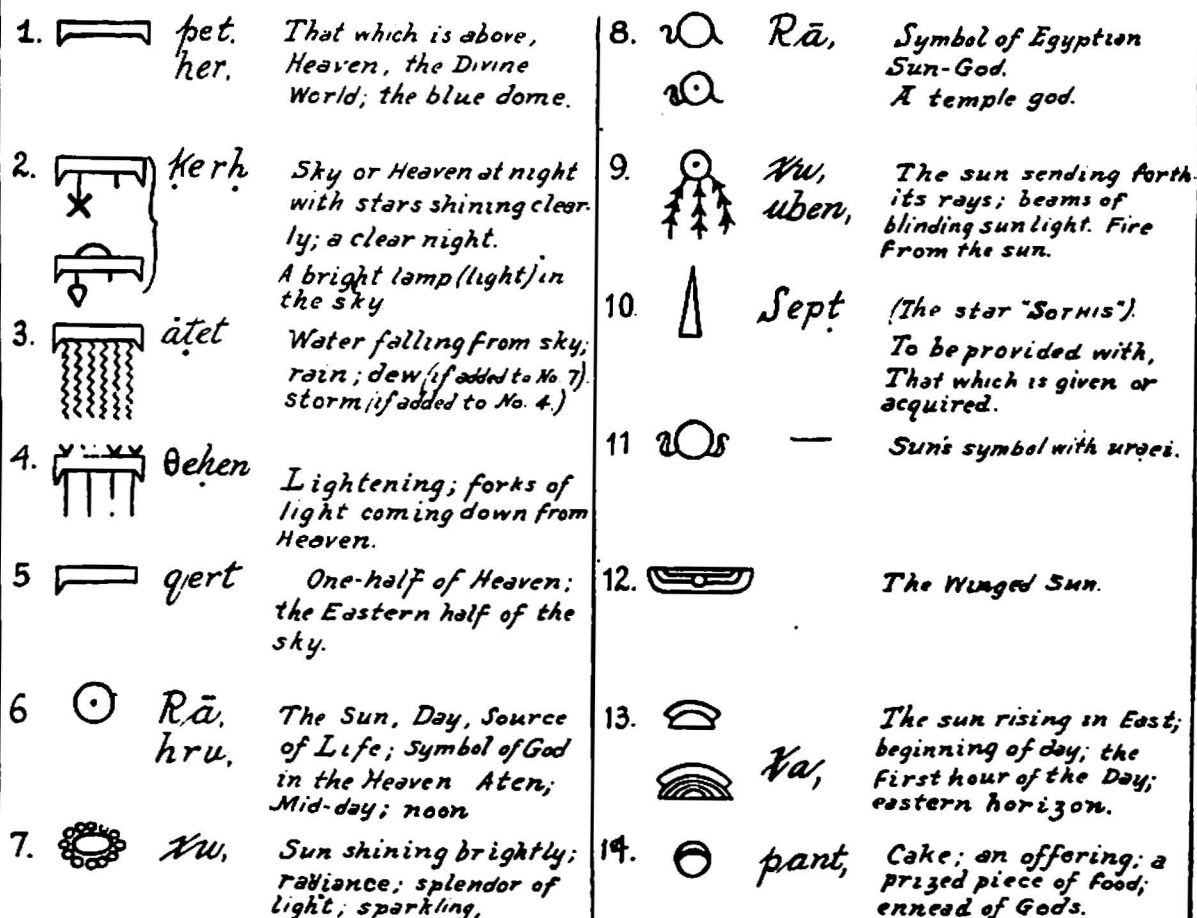 1. pet.
her.
That which is above,
Heaven, the Divine
World; the blue dome.
2. ḳerḥ
Sky or Heaven at night
with stars shining clear-
ly; a clear night.
A bright lamp (light) in
the sky
3. āṭet
Water falling from sky;
rain; dew (if added to No. 7).
storm (if added to No. 4.)
4. θeḥen
Lightening; forks of
light coming down from
Heaven.
5 qert
One-half of Heaven;
the Eastern half of the
sky.
6 Rā,
hru,
The Sun, Day, Source
of Life; Symbol of God
in the Heaven Aten;
Mid-day; noon
7. χu,
Sun shining brightly;
radiance; splendor of
light; sparkling,
8. Rā,
Symbol of Egyptian
Sun-God.
A temple god.
9. χu,
uben,
The sun sending forth
its rays; beams of
blinding sunlight. Fire
from the sun.
10. Sept
(The star "SOTHIS").
To be provided with,
That which is given or
acquired.
11 —
Sun's symbol with uraei.
12. The Winged Sun.
13. χa,
The sun rising in East;
beginning of day; the
first hour of the Day;
eastern horizon.
14. pant,
Cake; an offering; a
prized piece of food;
ennead of Gods.